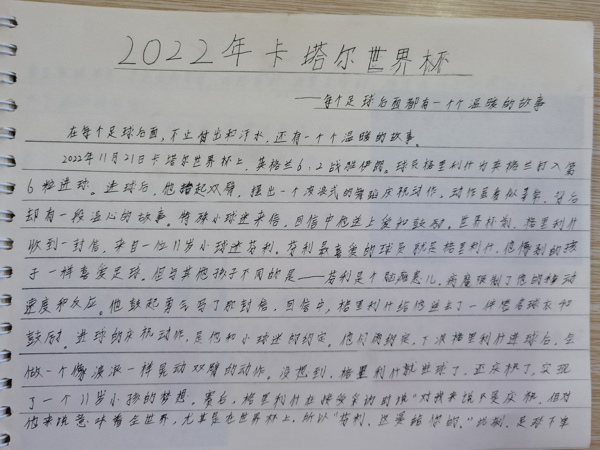 2022年卡塔尔世界杯
——每个足球后面都有一个个温暖的故事
在每个足球后面,不只付出和汗水,还有一个个温暖的故事。
2022年11月21日卡塔尔世界杯上,英格兰6:2战胜伊朗。球员格里利什为英格兰打入第
6粒进球。进球后,他张起双臂,摆出一个波浪式的舞蹈庆祝动作。动作看似简单,背后
却有一段温心的故事。特殊小球迷来信,回信中他送上爱和鼓励。世界杯前,格里利什
收到一封信,来自一位11岁小球迷芬利。芬利最喜爱的球员就是格里利什,他像别的孩
子一样喜爱足球。但与其他孩子不同的是——芬利是个脑瘫患儿,病魔限制了他的移动
速度和反应。他鼓起勇气写了那封信,回信中,格里利什给他送去了一件签名球衣和
鼓励。进球的庆祝动作,是他和小球迷的约定。他们约定,下次格里利什进球后,会
做一个像波浪一样晃动双臂的动作。没想到,格里利什就进球了,还庆祝了,实现
了一个11岁小孩的梦想。赛后,格里利什在接受采访时说"对我来说不是庆祝,但对
他来说意味着全世界,尤其是在世界杯上。所以"芬利,这是给你的。"此刻,足球下半